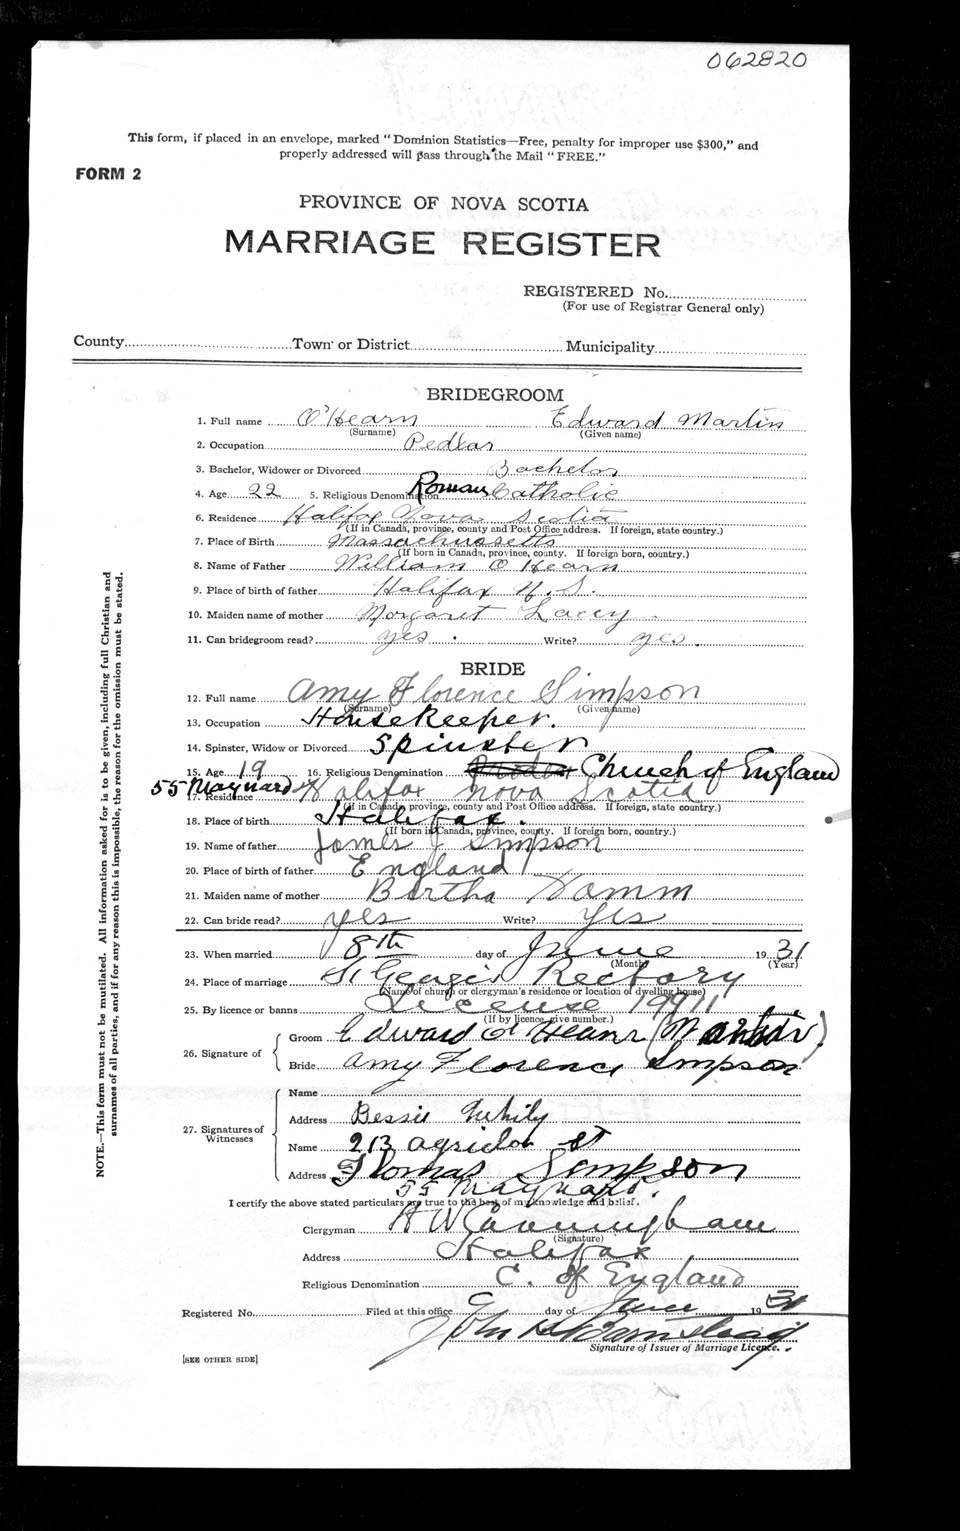 062820
This form, if placed in an envelope, marked "Dominion Statistics—Free, penalty for improper use $300," and
properly addressed will pass through the Mail "FREE."
FORM 2
PROVINCE OF NOVA SCOTIA
MARRIAGE REGISTER
REGISTERED No.
(For use of Registrar General only)
County Town or District Municipality
BRIDEGROOM
1. Full name O'Hearn Edward Martin
(Surname) (Given name)
2. Occupation Pedlar
3. Bachelor, Widower or Divorced Bachelor
4. Age 22 5. Religious Denomination Roman Catholic
6. Residence Halifax Nova Scotia
(If in Canada, province, county and Post Office address. If foreign, state country.)
7. Place of Birth Massachusetts
(If born in Canada, province, county. If foreign born, country.)
8. Name of Father William O'Hearn
9. Place of birth of father Halifax N.S.
10. Maiden name of mother Margaret Lacey
11. Can bridegroom read? yes. Write? yes.
BRIDE
12. Full name Amy Florence Simpson
(Surname) (Given name)
13. Occupation Housekeeper.
14. Spinster, Widow or Divorced Spinster
15. Age 19 16. Religious Denomination Church of England
55 Maynard
17. Residence Halifax Nova Scotia
(If in Canada province, county and Post Office address. If foreign, state country.)
18. Place of birth Halifax.
(If born in Canada, province, county. If foreign born, country.)
19. Name of father James J Simpson
20. Place of birth of father England
21. Maiden name of mother Bertha Hamm
22. Can bride read? yes Write? yes
23. When married 8th day of June 1931
(Month) (Year)
24. Place of marriage St George's Rectory
(Name of church or clergyman's residence or location of dwelling house)
25. By licence or banns License 19911
(If by licence, give number.)
26. Signature of Groom Edward O'Hearn (Martin)
Bride Amy Florence Simpson
27. Signatures of Witnesses
Name
Address Bessie
Name 213 Agricola St
Address Thomas Simpson
55 Maynard.
I certify the above stated particulars are true to the best of my knowledge and belief.
Clergyman H W Cunningham
(Signature)
Address Halifax
Religious Denomination C. of England
Registered No. Filed at this office 9 day of June 1931
John H
Signature of Issuer of Marriage Licence.
[SEE OTHER SIDE]
NOTE.—This form must not be mutilated. All information asked for is to be given, including full Christian and
surnames of all parties, and if for any reason this is impossible, the reason for the omission must be stated.